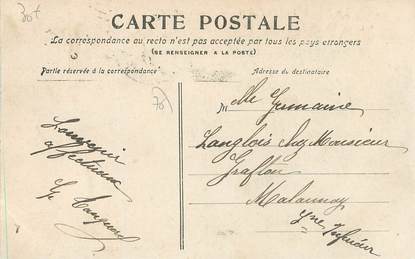 30+
CARTE POSTALE
La correspondance au recto n'est pas acceptée par tous les pays étrangers
(SE RENSEIGNER A LA POSTE)
Partie réservée à la correspondance
Adresse du destinataire
70
Souvenir
affectueux
G.
Mlle Germaine
Langlois chez Monsieur
Grafton
Malaunay
Sne Inférieur